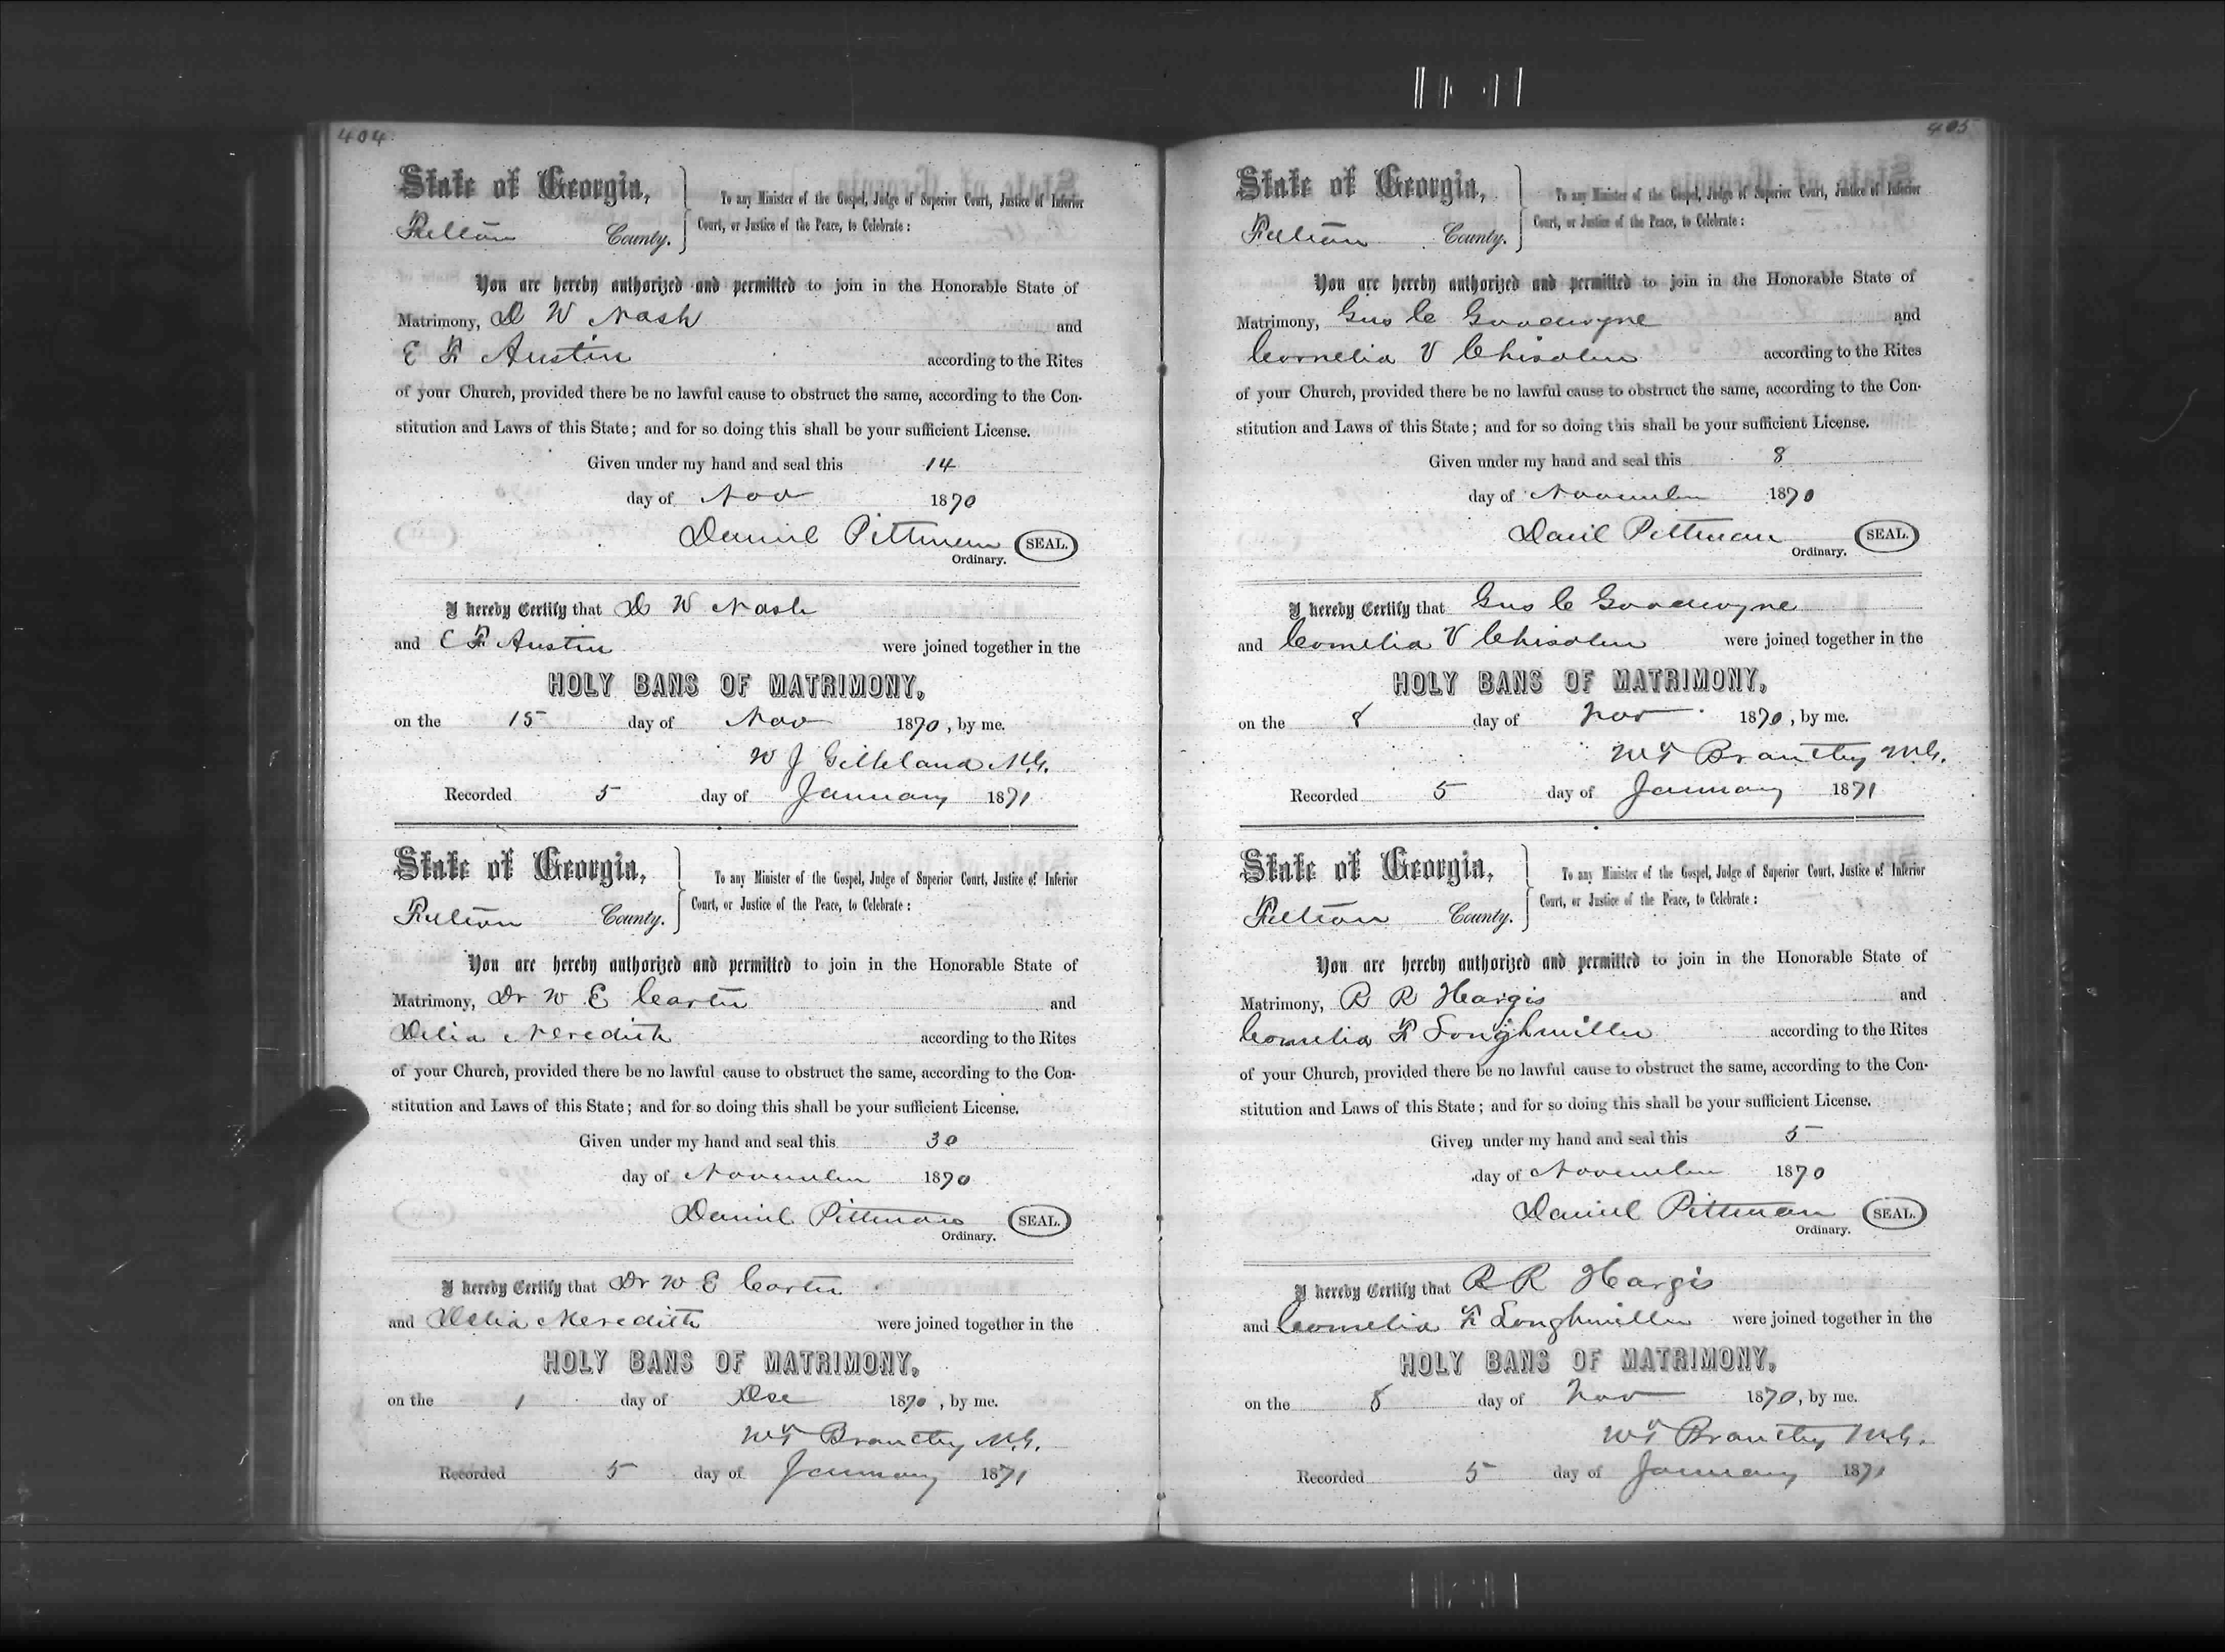 404
State of Georgia,
Fulton County.
To any Minister of the Gospel, Judge of Superior Court, Justice of Inferior
Court, or Justice of the Peace, to Celebrate:
You are hereby authorized and permitted to join in the Honorable State of
Matrimony, D W Nash and
E F Austin according to the Rites
of your Church, provided there be no lawful cause to obstruct the same, according to the Con-
stitution and Laws of this State; and for so doing this shall be your sufficient License.
Given under my hand and seal this 14
day of Nov 1870
Daniel Pittman SEAL.
Ordinary.
I hereby Certify that D W Nash
and E F Austin were joined together in the
HOLY BANS OF MATRIMONY,
on the 15 day of Nov 1870, by me.
W J Gilleland M.G.
Recorded 5 day of January 1871
State of Georgia,
Fulton County.
To any Minister of the Gospel, Judge of Superior Court, Justice of Inferior
Court, or Justice of the Peace, to Celebrate:
You are hereby authorized and permitted to join in the Honorable State of
Matrimony, Dr W E Carter and
Delia Meredith according to the Rites
of your Church, provided there be no lawful cause to obstruct the same, according to the Con-
stitution and Laws of this State; and for so doing this shall be your sufficient License.
Given under my hand and seal this 30
day of November 1870
Daniel Pittman SEAL.
Ordinary.
I hereby Certify that Dr W E Carter
and Delia Meredith were joined together in the
HOLY BANS OF MATRIMONY,
on the 1 day of Dec 1870, by me.
WT Brantley M.G.
Recorded 5 day of January 1871
405
State of Georgia,
Fulton County.
To any Minister of the Gospel, Judge of Superior Court, Justice of Inferior
Court, or Justice of the Peace, to Celebrate:
You are hereby authorized and permitted to join in the Honorable State of
Matrimony, Gus C Goodwyne and
Cornelia V Chisolm according to the Rites
of your Church, provided there be no lawful cause to obstruct the same, according to the Con-
stitution and Laws of this State; and for so doing this shall be your sufficient License.
Given under my hand and seal this 8
day of November 1870
Daniel Pittman SEAL.
Ordinary.
I hereby Certify that Gus C Goodwyne
and Cornelia V Chisolm were joined together in the
HOLY BANS OF MATRIMONY,
on the 8 day of Nov 1870, by me.
WT Brantley M.G.
Recorded 5 day of January 1871
State of Georgia,
Fulton County.
To any Minister of the Gospel, Judge of Superior Court, Justice of Inferior
Court, or Justice of the Peace, to Celebrate:
You are hereby authorized and permitted to join in the Honorable State of
Matrimony, R R Hargis and
Cornelia F Longhmiller according to the Rites
of your Church, provided there be no lawful cause to obstruct the same, according to the Con-
stitution and Laws of this State; and for so doing this shall be your sufficient License.
Given under my hand and seal this 5
day of November 1870
Daniel Pittman SEAL.
Ordinary.
I hereby Certify that R R Hargis
and Cornelia F Longhmiller were joined together in the
HOLY BANS OF MATRIMONY,
on the 8 day of Nov 1870, by me.
WT Brantley M.G.
Recorded 5 day of January 1871